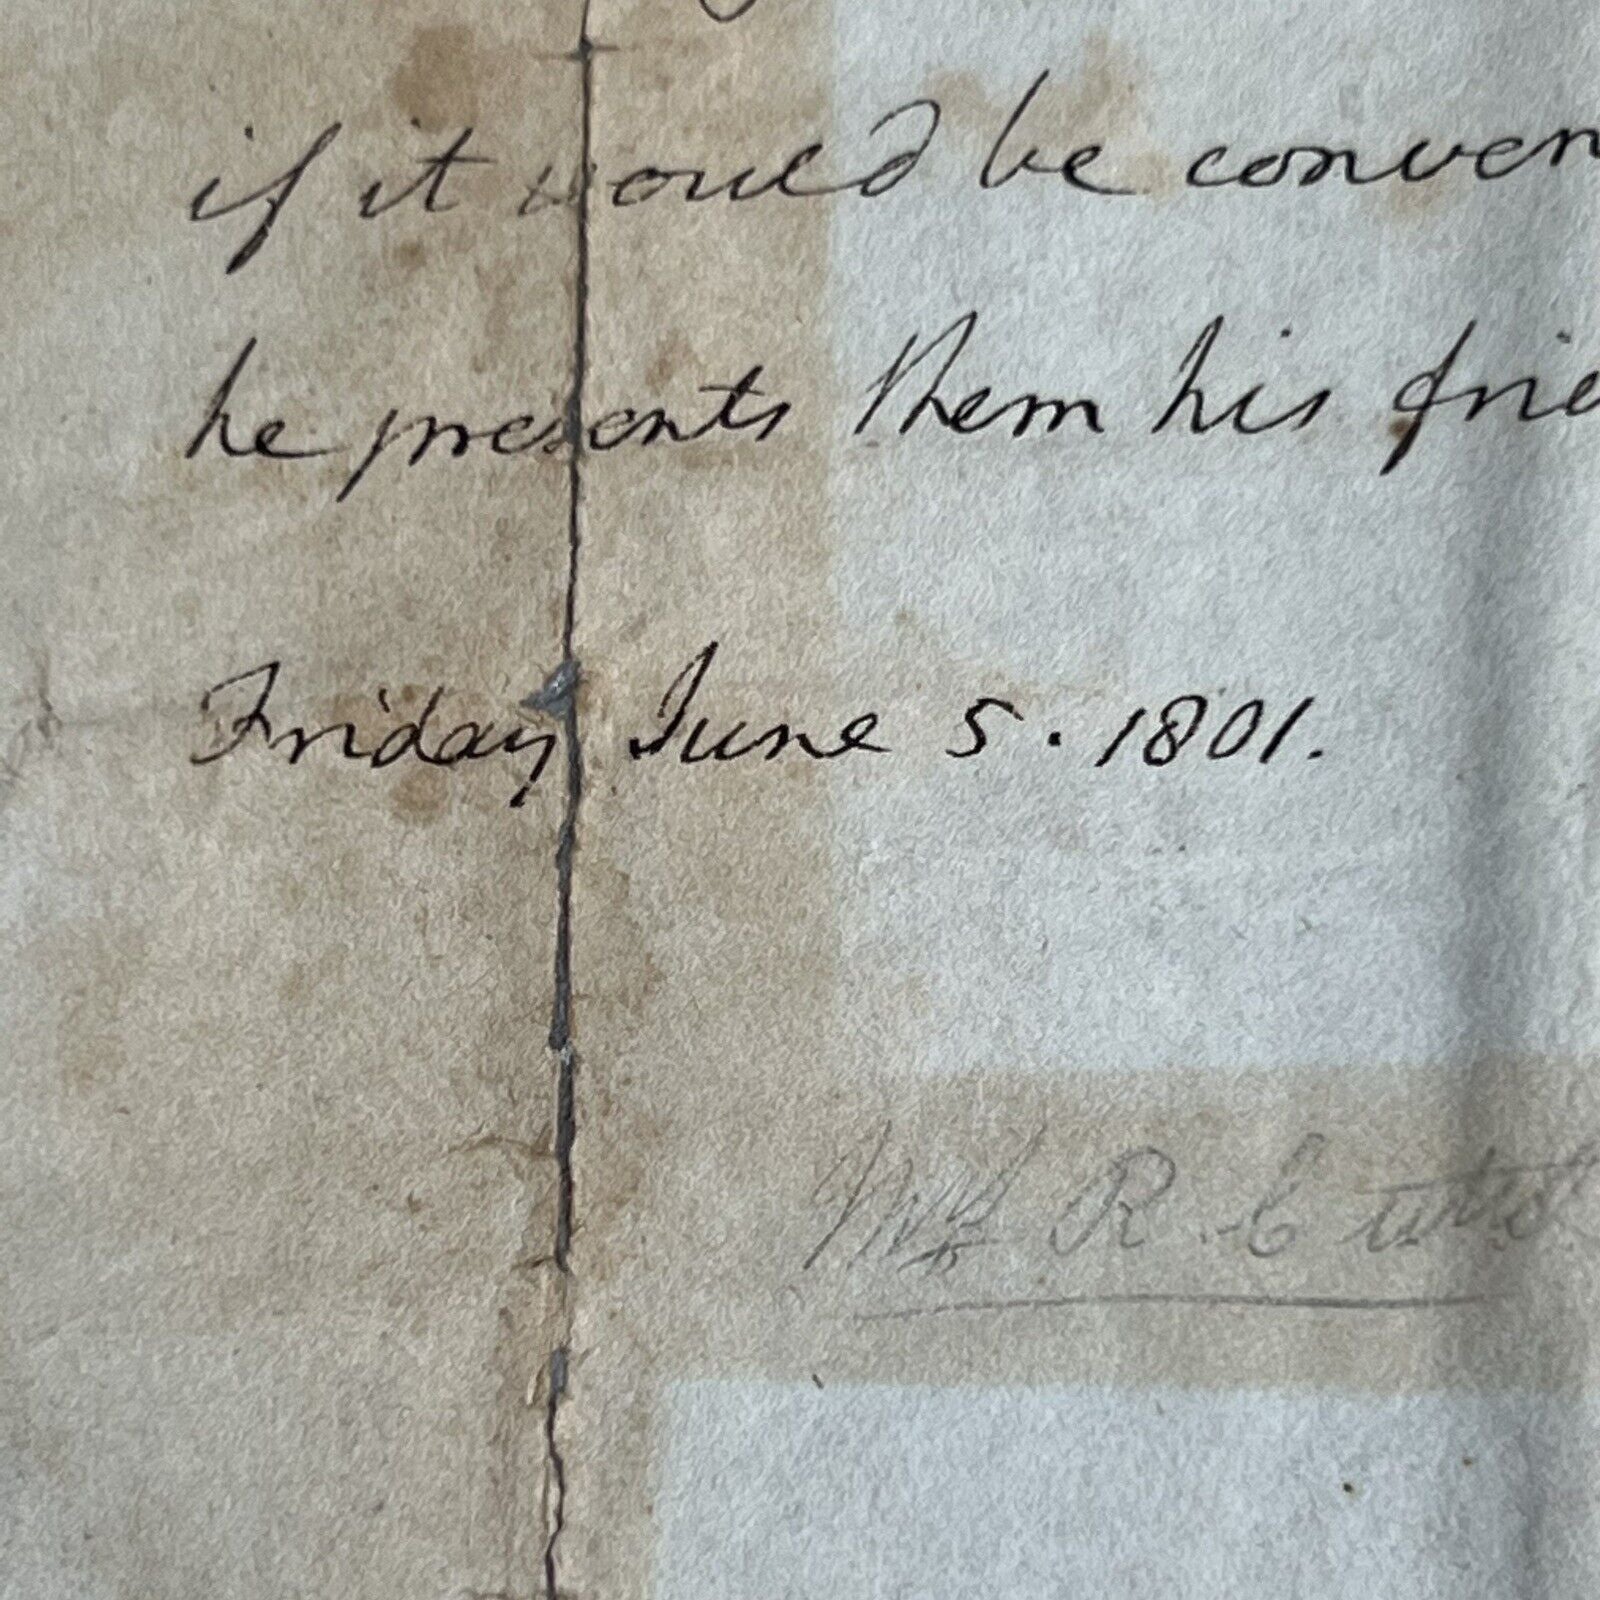 if it would be conven
he presents them his frie
Friday June 5. 1801.
R. C